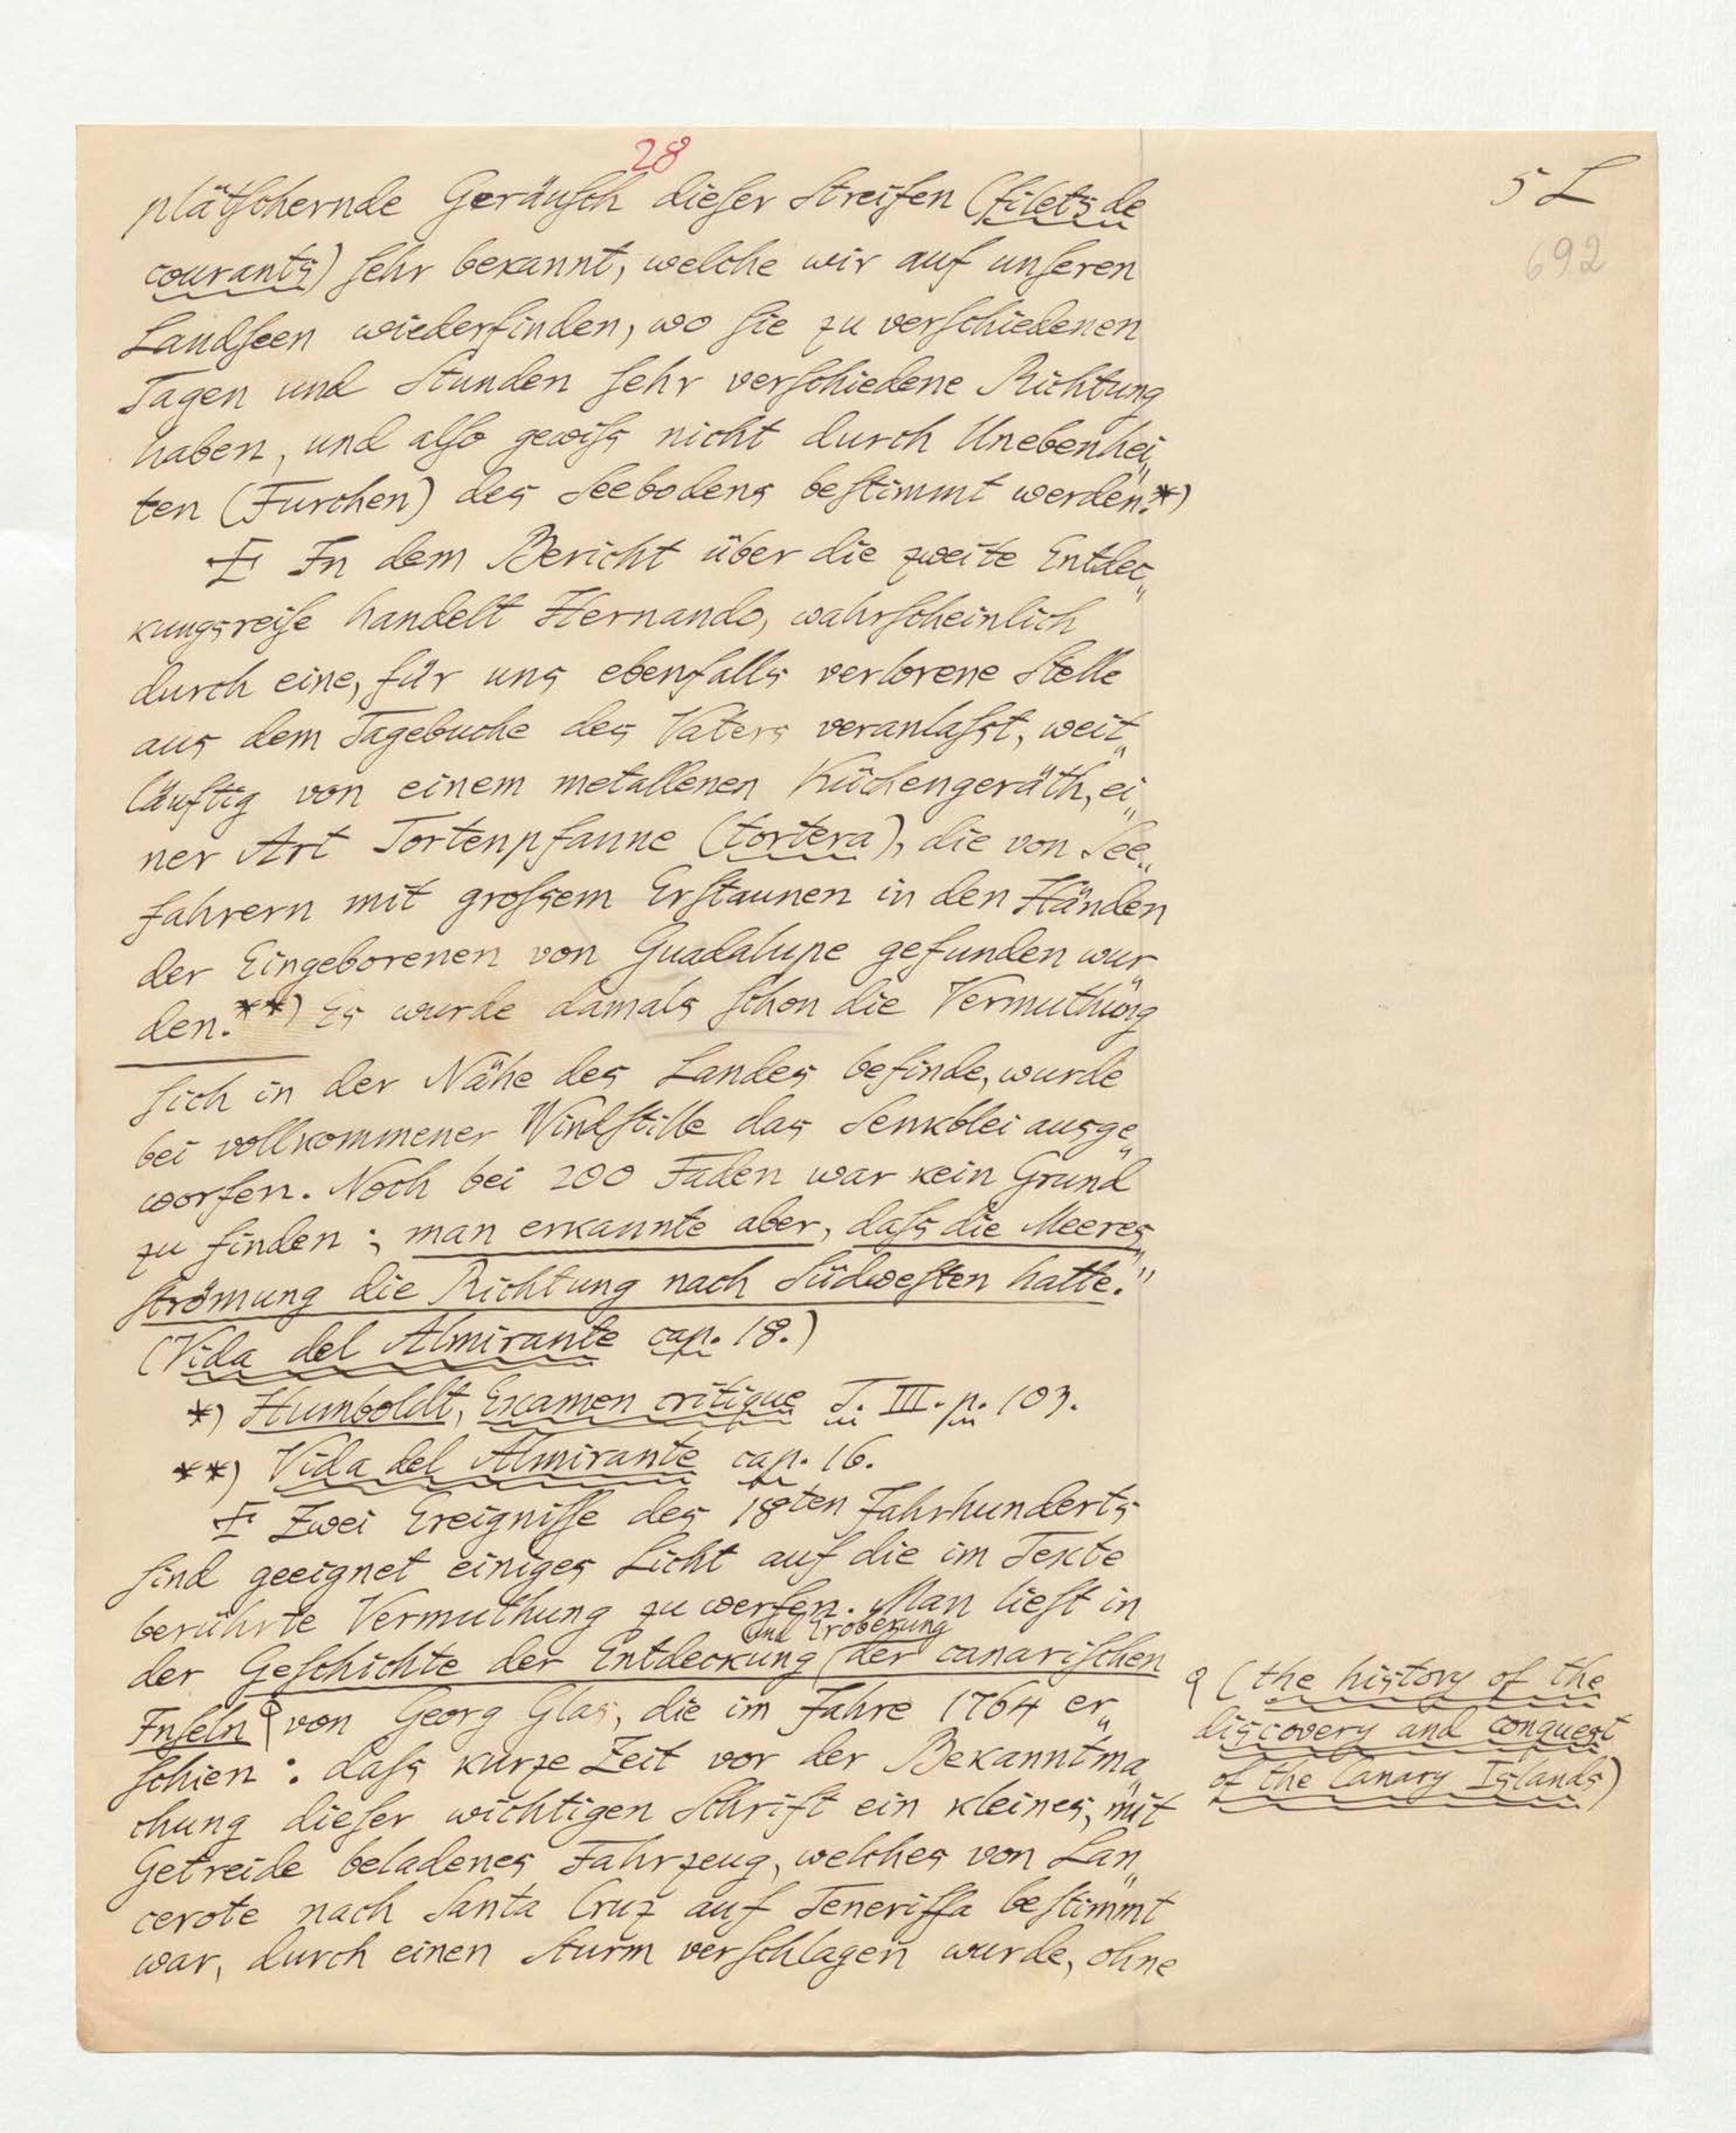 28
5 L
692
plätschernde Geräusch dieser Streifen (filets de
courants) sehr bekannt, welche wir auf unseren
Landseen wiederfinden, wo sie zu verschiedenen
Tagen und Stunden sehr verschiedene Richtung
haben, und also gewiss nicht durch Unebenhei„
ten (Furchen) des Seebodens bestimmt werden.*)
‡ In dem Bericht über die zweite Entdec„
kungsreise handelt Hernando, wahrscheinlich
durch eine, für uns ebenfalls verlorene Stelle
aus dem Tagebuche des Vaters veranlasst, weit„
läuftig von einem metallenen Küchengeräth, ei„
ner Art Tortenpfanne (tortera), die von See„
fahrern mit grossem Erstaunen in den Händen
der Eingeborenen von Guadalupe gefunden wur„
den.**) Es wurde damals schon die Vermuthung
sich in der Nähe des Landes befinde, wurde
bei vollkommener Windstille das Senkblei ausge„
worfen. Noch bei 200 Faden war kein Grund
zu finden; man erkannte aber, dass die Meeres„
strömung die Richtung nach Südwesten hatte."
(Vida del Almirante cap. 18.)
*) Humboldt, Examen critique T. III. p. 103.
**) Vida del Almirante cap. 16.
‡ Zwei Ereignisse des 18ten Jahrhunderts
sind geeignet einiges Licht auf die im Texte
berührte Vermuthung zu werfen. Man liest in
und Eroberung
der Geschichte der Entdeckung der canarischen
Inseln von Georg Glas, die im Jahre 1764 er„
schien: dass kurze Zeit vor der Bekanntma„
chung dieser wichtigen Schrift ein kleines, mit
Getreide beladenes Fahrzeug, welches von Lan„
cerote nach Santa Cruz auf Teneriffa bestimmt
war, durch einen Sturm verschlagen wurde, ohne
(the history of the
discovery and conquest
of the Canary Islands)